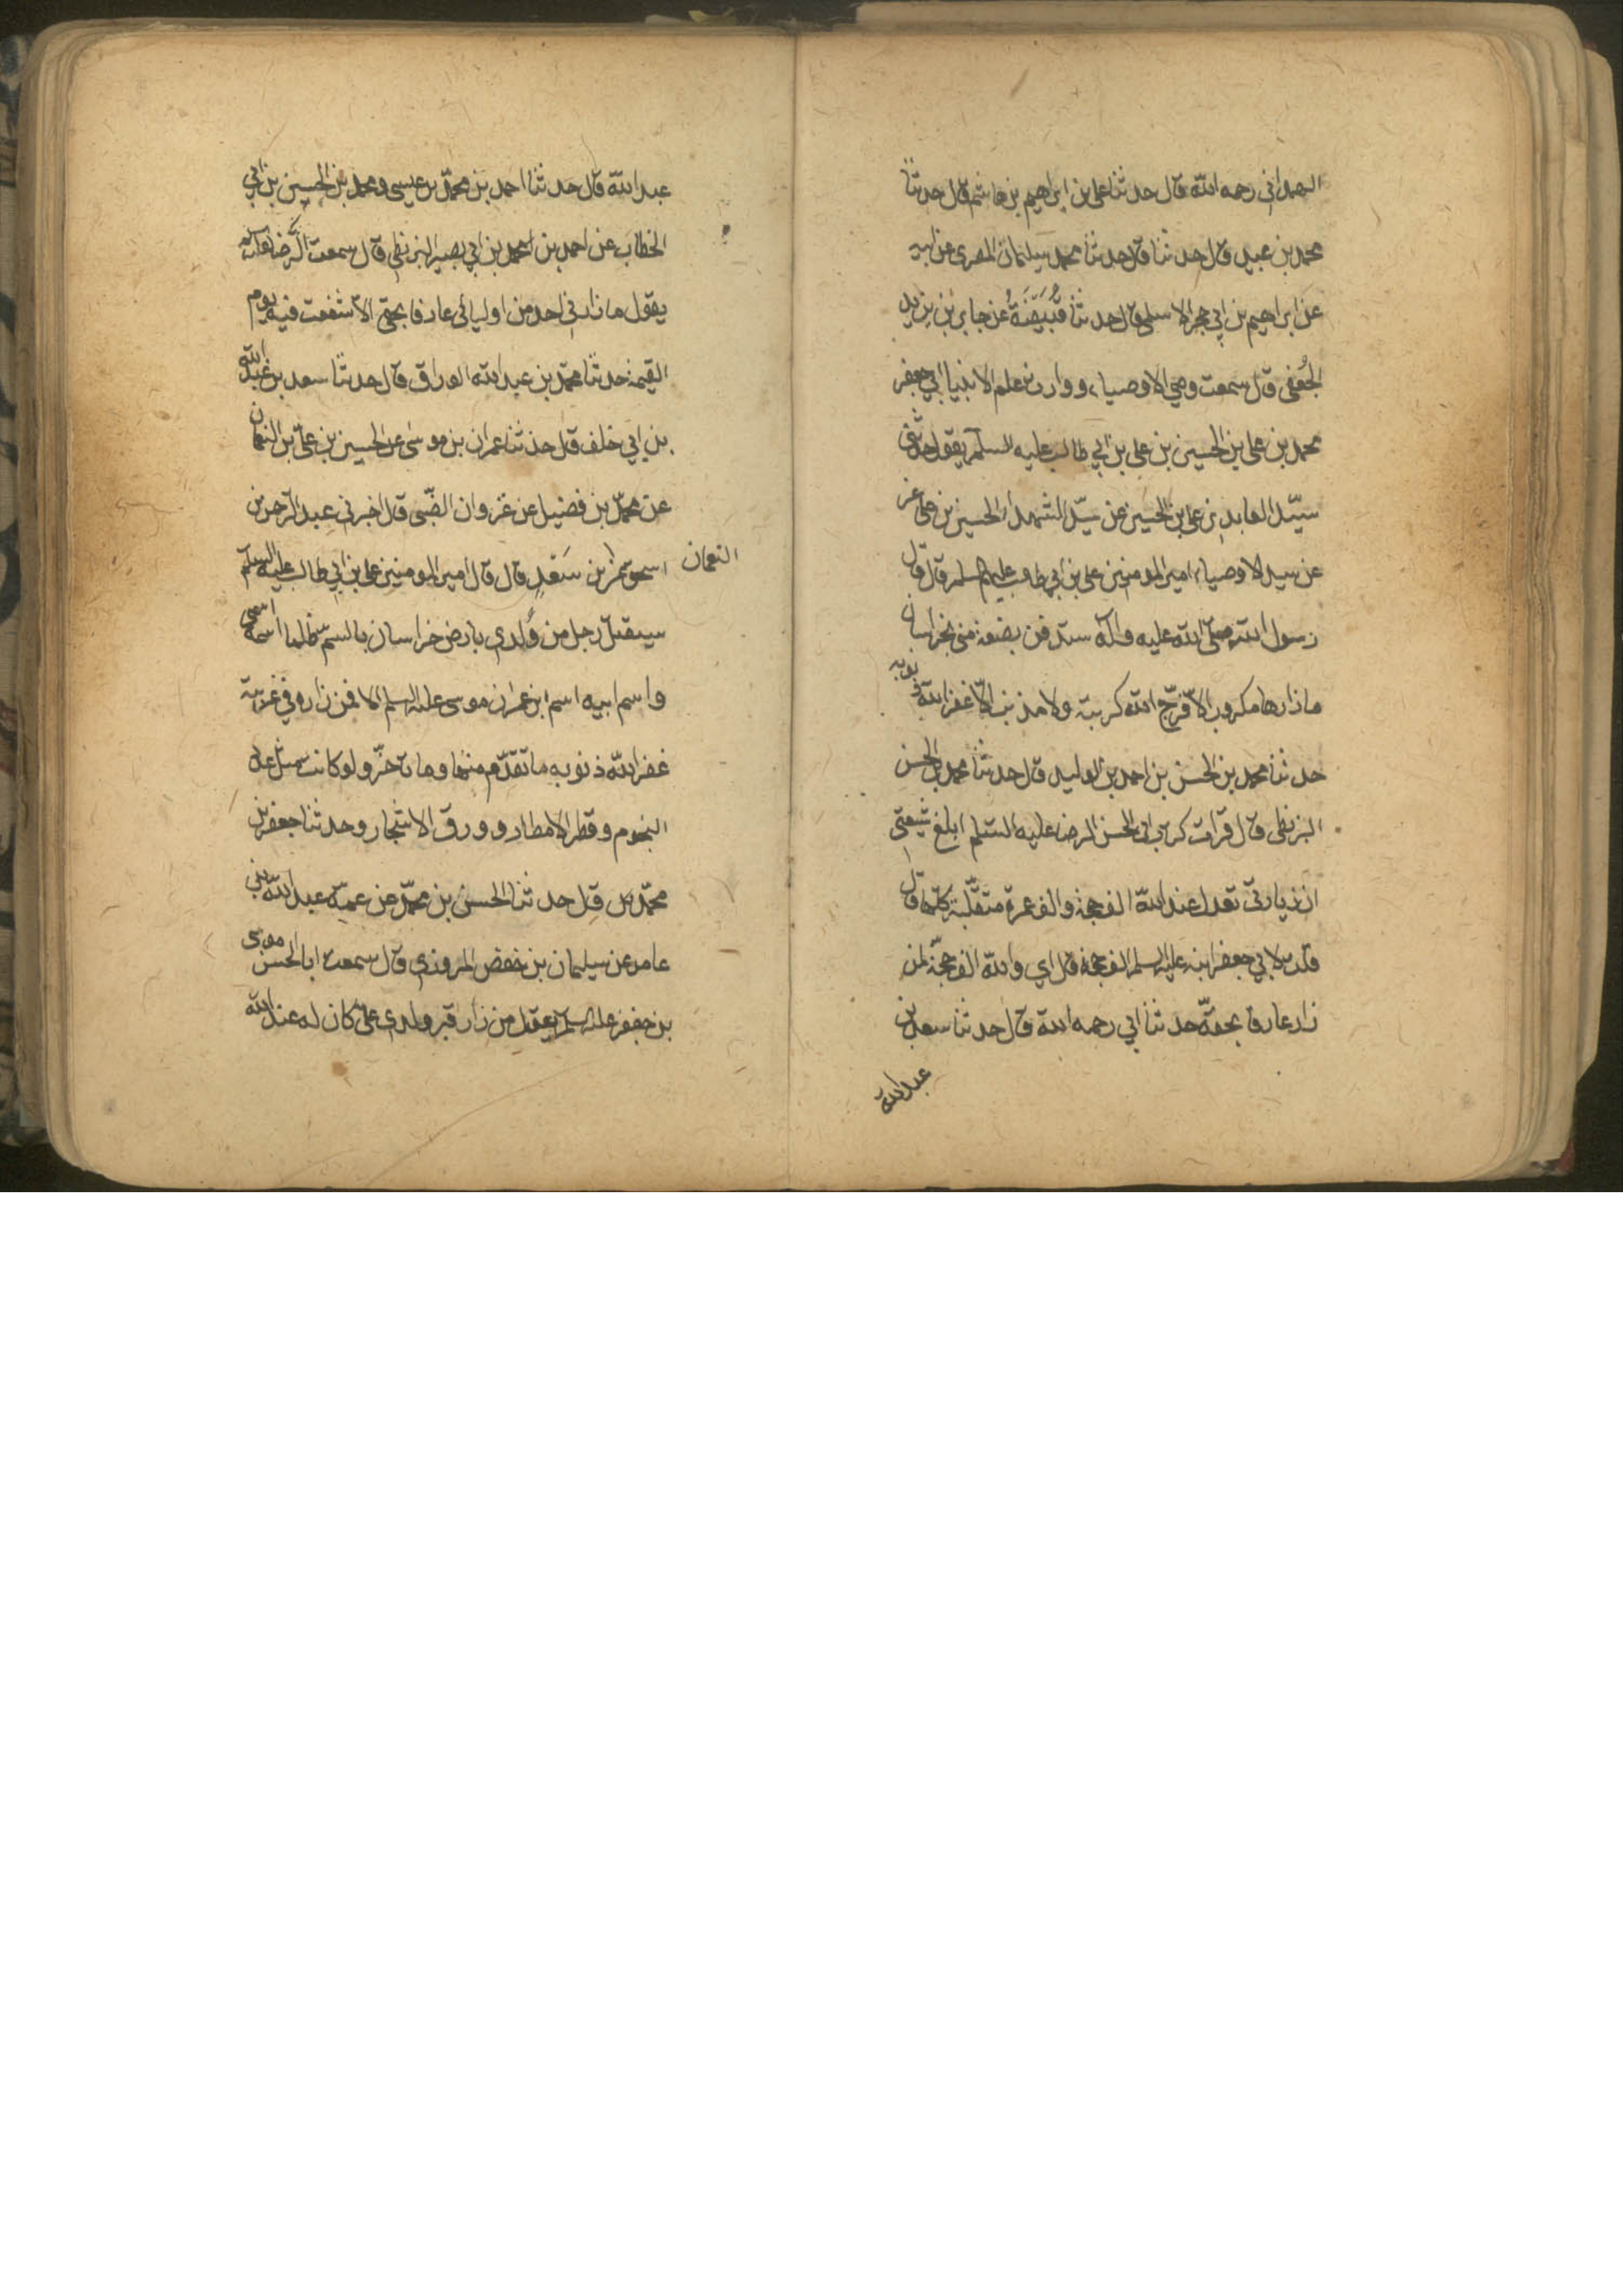 الهمداني رحمه الله قال حدثنا علي بن ابراهيم بن هاشم قال حدثنا
محمد بن عبيد قال حدثنا قال حدثنا محمد سليمان المصري عن ابيه
عن ابراهيم بن ابي حجر الاسلمي قال حدثنا قُبَيْصَةُ عن جابر بن يزيد
الجُعْفي قال سمعت وصي الاوصياء ووارث علم الانبيا ابي جعفر
محمد بن علي بن الحسين بن علي بن ابي طالب عليه السلم يقول حدثني
سيّد العابدين علي بن الحسين عن سيّد الشهداء الحسين بن علي عن
عن سيد الاوصياء امير المومنين علي بن ابي طالب عليهم السلم قال قال
رسول الله صلّى الله عليه واله ستدفن بضعة مني بخراسان
ما زارها مكروب الّا فرّج الله كربته ولا مذنب الّا غفر الله ذنوبه
حدثنا محمد بن الحسن بن احمد بن الوليد قال حدثنا محمد بن الحسن
البزنطي قال قرات كتاب ابي الحسن الرضا عليه السّلم ابلغ شيعتي
ان زيارتي تعدل عند الله الف حجة والف عمرة متقبّلة كلّها قال
قلت لابي جعفر ابنه عليه السلم الف حجة قال اي والله الف حجّة لمن
زاره عارفا بحقّه حدثنا ابي رحمه الله قال حدثنا سعد بن
عبد الله
عبد الله قال حدثنا احمد بن محمّد بن عيسى ومحمد بن الحسين بن ابي
الخطاب عن احمد بن احمد بن ابي بصير البزنطي قال سمعت الرّضا عليه السلم
يقول ما زارني احد من اوليائي عارفا بحقي الّا شفعت فيه يوم
القيمة حدثنا محمّد بن عبد الله الوراق قال حدثنا سعد بن عبد الله
بن ابي خلف قال حدثنا عمران بن موسى عن الحسين بن علي بن النعمان
عن محمّد بن فضيل عن غزوان الضّبي قال اخبرني عبد الرّحمن بن
النعمان
اسحق عن بن سَعْدٍ قال قال امير المومنين علي بن ابي طالب عليه السلم
سيقتل رجل من وُلدي بارض خراسان بالسم ظلما اسمه اسمي
واسم ابيه اسم ابن عمران موسى عليه السلم الا فمن زاره في غربته
غفر الله ذنوبه ما تقدّم منها وما تاخّر ولو كانت مثل عدد
النجوم وقطر الامطار وورق الاشجار وحدثنا جعفر بن
محمّد قال حدثنا الحسين بن محمّد عن عمّه عبد الله بن
عامر عن سليمان بن حفص المروزي قال سمعت ابا الحسن موسى
بن جعفر عليه السلم يقول من زار قبر ولدي علي كان له عند الله